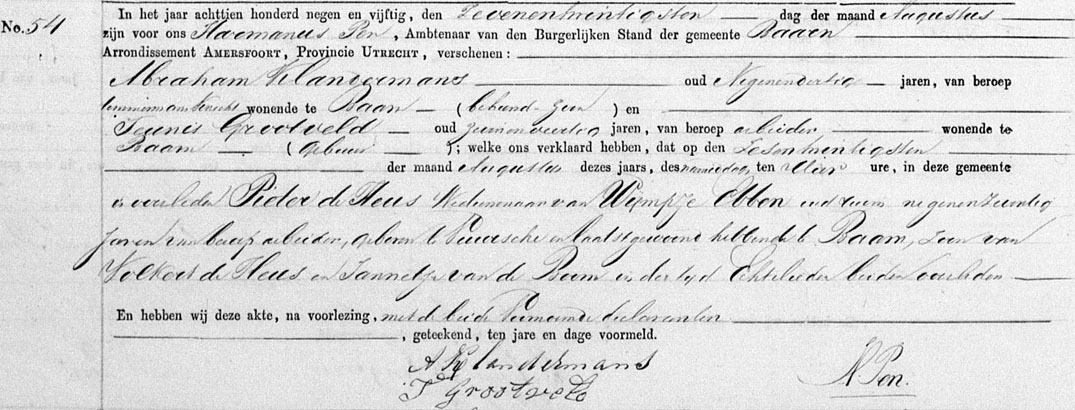 No. 54
In het jaar achttien honderd negen en vijftig, den Zevenentwintigsten dag der maand Augustus
zijn voor ons Harmanus Pen, Ambtenaar van den Burgerlijken Stand der gemeente Baarn
Arrondissement AMERSFOORT, Provincie UTRECHT, verschenen:
Abraham Klandermans oud Negenendertig jaren, van beroep
timmermansknecht wonende te Baarn ( bekend ) en
Teunis Grootveld oud jaren, van beroep arbeider wonende te
Baarn ( gebuur ); welke ons verklaard hebben, dat op den Zesentwintigsten
der maand Augustus dezes jaars, des namiddags ten vier ure, in deze gemeente
is overleden Pieter de Heus Weduwenaar van Wijmpje Ebben oud ruim negenenzeventig
jaren van beroep arbeider, geboren te en laatst gewoond hebbende te Baarn, Zoon van
Volkert de Heus en Jannetje van de Boom in der tijd Echtelieden beiden overleden
En hebben wij deze akte, na voorlezing, met de beide declaranten
, geteekend, ten jare en dage voormeld.
A Klandermans
T Grootveld
H. Pen.